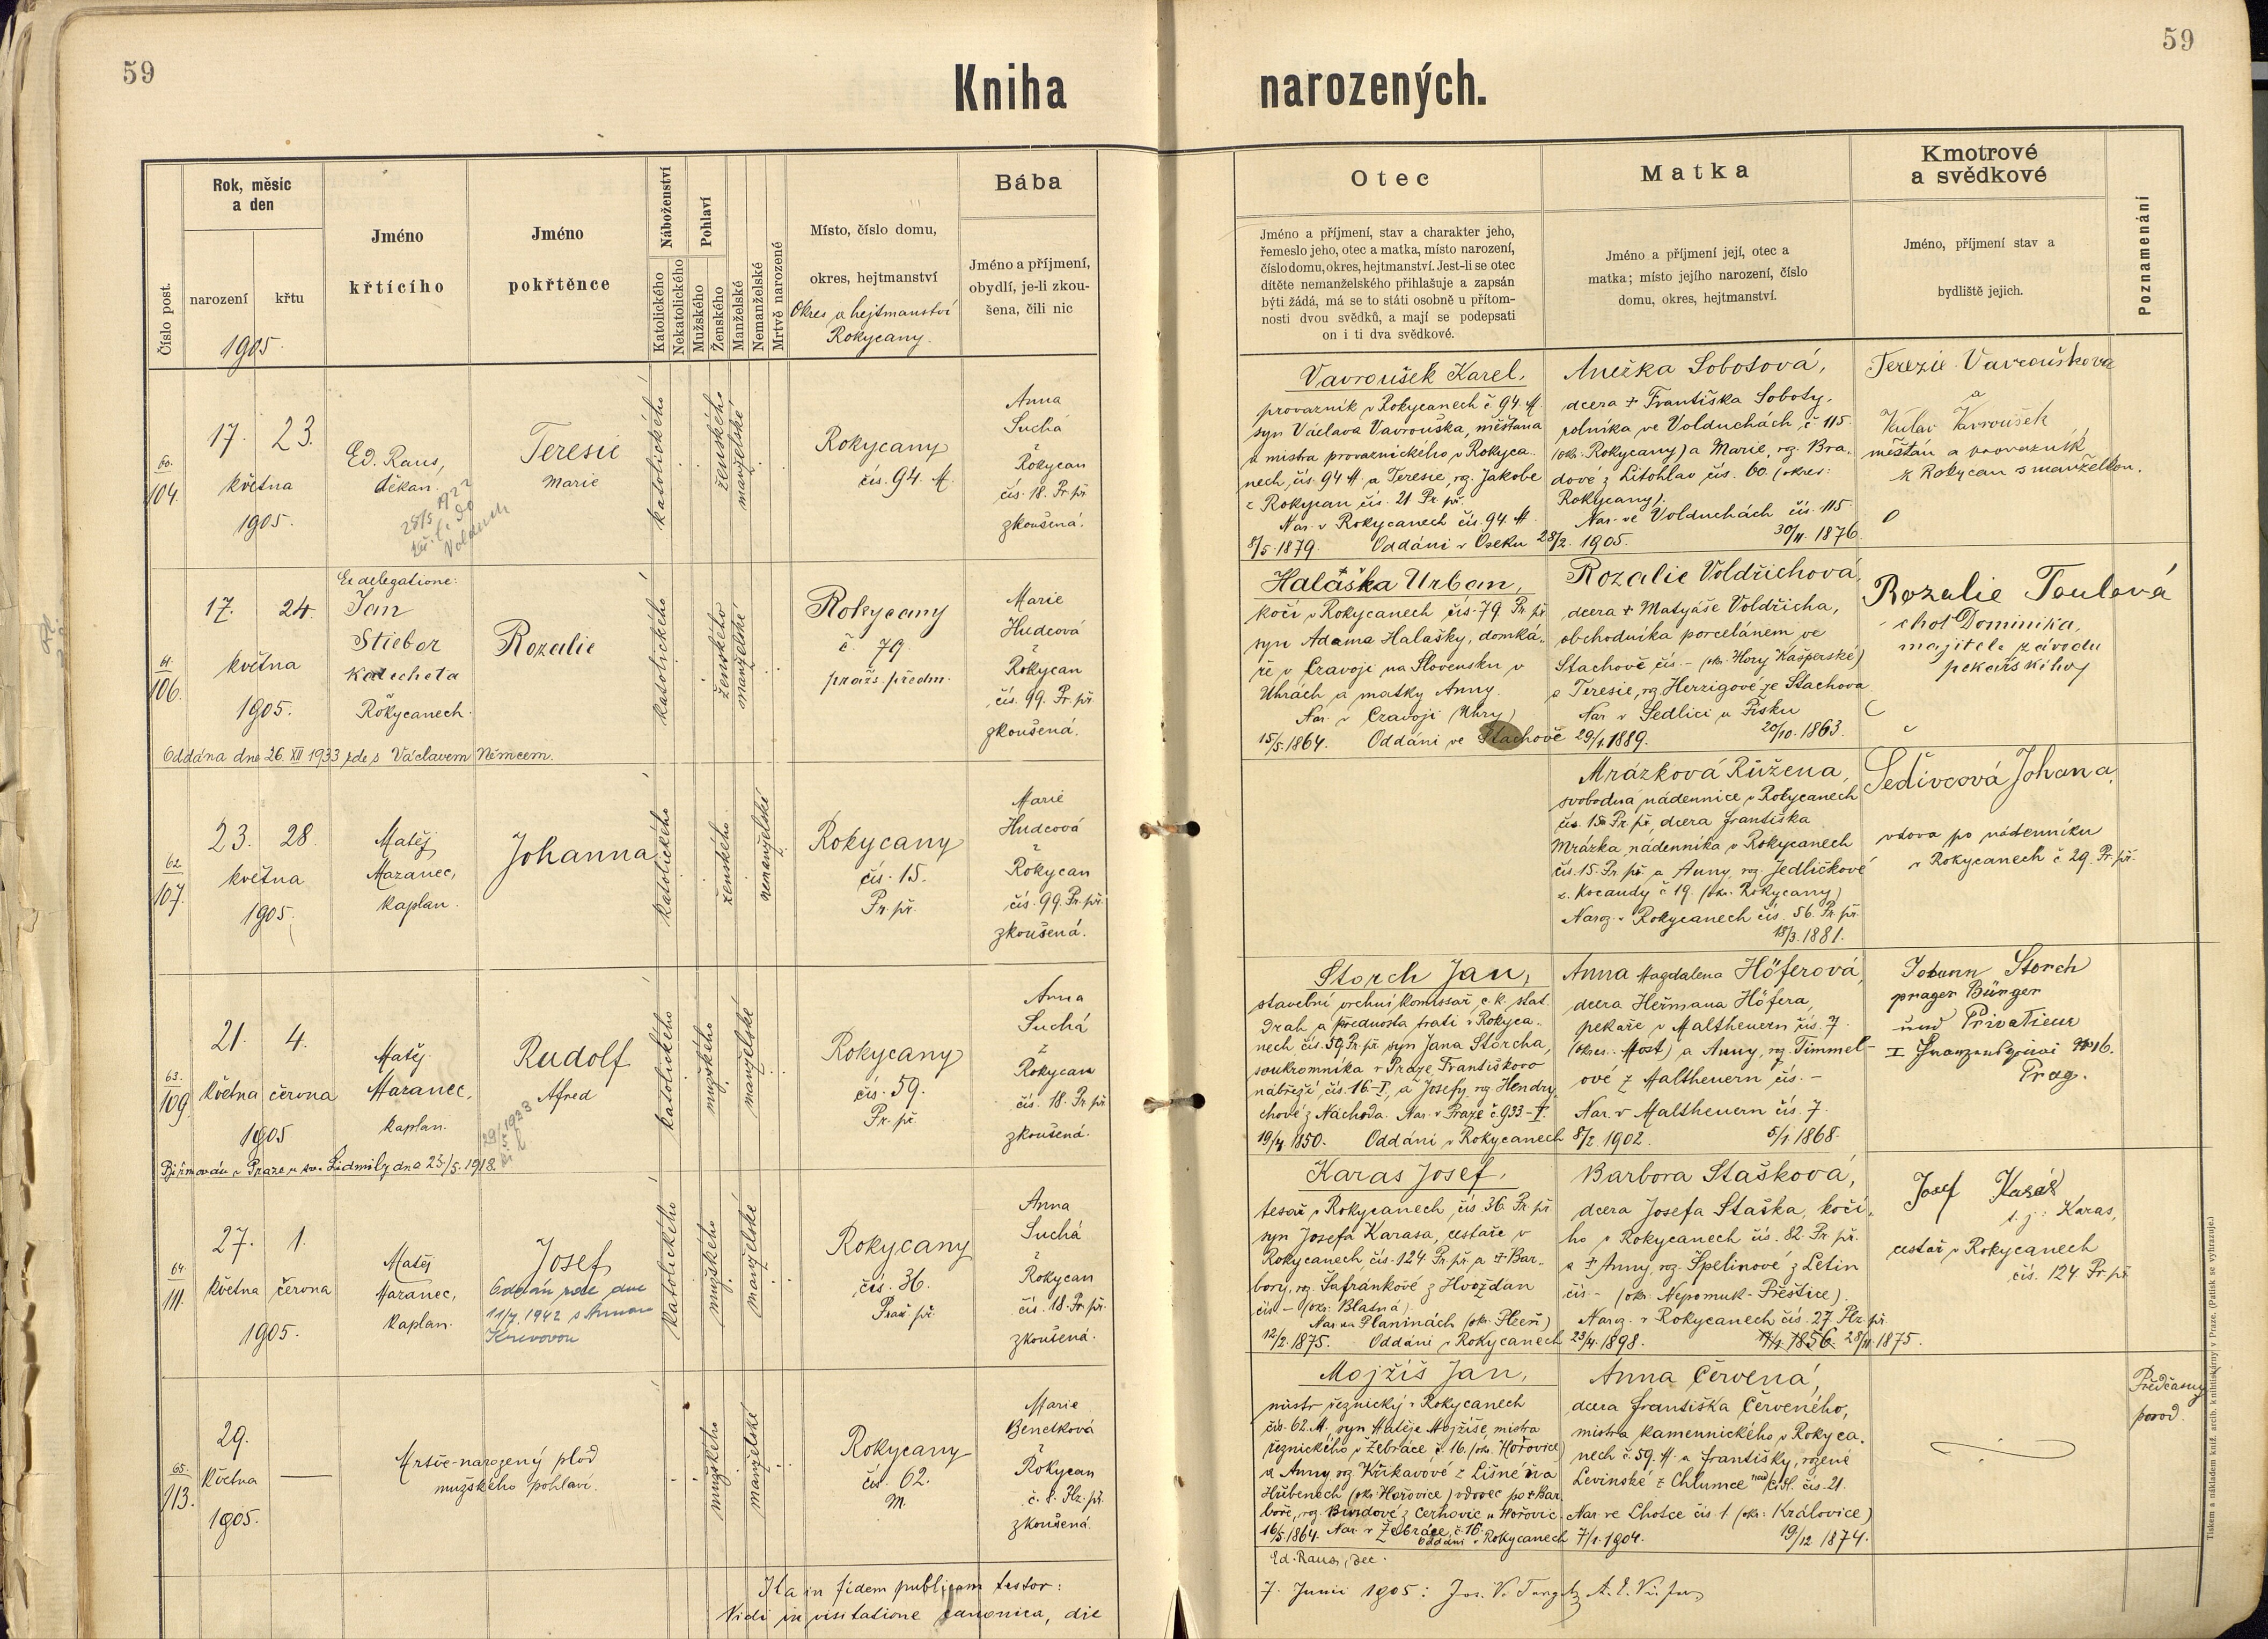 59
59
Kniha
narozených.
Číslo post.
Rok, měsíc
a den
narození
křtu
1905.
Jméno
křtícího
Jméno
pokřtěnce
Náboženství
Katolického
Nekatolického
Pohlaví
Mužského
Ženského
Manželské
Nemanželské
Mrtvě narozené
Místo, číslo domu,
okres, hejtmanství
Okres a hejtmanství
Rokycany.
Bába
Jméno a příjmení,
obydlí, je-li zkou-
šena, čili nic
Otec
Jméno a příjmení, stav a charakter jeho,
řemeslo jeho, otec a matka, místo narození,
číslo domu, okres, hejtmanství. Jest-li se otec
dítěte nemanželského přihlašuje a zapsán
býti žádá, má se to státi osobně u přítom-
nosti dvou svědků, a mají se podepsati
on i ti dva svědkové.
Matka
Jméno a příjmení její, otec a
matka; místo jejího narození, číslo
domu, okres, hejtmanství.
Kmotrové
a svědkové
Jméno, příjmení stav a
bydliště jejich.
Poznamenání
60.
104.
17. 23.
května
1905.
Ed. Raus,
děkan.
25/5 1922
Volduch
Teresie
Marie
katolického
ženského
manželské
Rokycany
čís. 94. M.
Anna
Suchá
z
Rokycan
čís. 18. Pr. př.
zkoušená.
Vavroušek Karel,
provazník v Rokycanech č. 94. M.
syn Václava Vavrouška, měšťana
a mistra provaznického v Rokyca-
nech, čís. 94 M. a Teresie, rz. Jakobe
z Rokycan čís. 21 Pr. př.
Nar. v Rokycanech čís. 94. M.
8/5. 1879. Oddáni v Oseku 28/2. 1905.
Anežka Sobotová,
dcera + Františka Soboty,
rolníka ve Volduchách, č 115.
(okr. Rokycany) a Marie, rz. Bra-
dové z Litohlav čís. 60. (okres:
Rokycany).
Nar. ve Volduchách čís. 115.
30/11. 1876.
Terezie Vavroušková
a
Vavroušek
měšťán a provazník
z Rokycan s manželkou.
61.
106.
17. 24.
května
1905.
Ex delegatione:
Jan
Stiebor
Katecheta
v Rokycanech.
Rozalie
katolického
ženského
manželské
Rokycany
č. 79.
praž. předm.
Marie
Hudcová
z
Rokycan
čís. 99. Pr. př.
zkoušená.
Oddána dne 26. XII 1933 zde s Václavem Němcem.
Halaška Urban,
kočí v Rokycanech čís. 79. Pr. př.
syn Adama Halašky, domká-
ře v Czavoji na Slovensku v
Uhrách a matky Anny.
Nar. v Czavoji (Uhry)
15/5. 1864. Oddáni ve Stachově 29/1. 1889.
Rozalie Voldřichová,
dcera + Matyáše Voldřicha,
obchodníka porcelánem ve
Stachově čís. – (okr. Hory Kašperské)
a Teresie, rz. Herzigové ze Stachova
Nar. v Sedlici u Písku
20/10. 1863.
Rozalie Toulová
choť Dominika,
majitele závodu
pekařského
62.
107.
23. 28.
května
1905.
Matěj
Mazanec,
kaplan.
Johanna
katolického
ženského
nemanželské
Rokycany
čís. 15.
Pr. př.
Marie
Hudcová
z
Rokycan
čís. 99. Pr. př.
zkoušená.
Mrázková Růžena,
svobodná nádennice v Rokycanech
čís. 15 Pr. př. dcera Františka
Mrázka, nádenníka v Rokycanech
čís. 15. Pr. př. a Anny, rz. Jedličkové
z. Kocandy č 19. (okr. Rokycany)
Naroz. v Rokycanech čís. 56. Pr. př.
18/3. 1881.
Šedivcová Johana,
vdova po nádenníku
v Rokycanech č 29. Pr. př.
63.
109.
21. 4.
května června
1905
Matěj
Mazanec,
kaplan.
Rudolf
Alfred
katolického
mužského
manželské
Rokycany
čís. 59.
Pr. př.
Anna
Suchá
z
Rokycan
čís. 18. Pr. př.
zkoušená.
Biřmován v Praze u sv. Lidmily dne 25/5. 1918.
Storch Jan,
stavební vrchní komisař c. k. stat.
drah a přednosta trati v Rokyca-
nech, čís. 59 Pr. př. syn Jana Storcha,
soukromníka v Praze, Františkovo
nábřeží, čís. 16-I, a Josefy, rz. Hendry-
chové z Náchoda. Nar. v Praze č. 933-I.
19/4 1850. Oddáni v Rokycanech 8/2. 1902.
Anna Magdalena Höferová,
dcera Heřmana Höfera,
pekaře v Maltheuern čís. 7.
(okres: Most) a Anny, rz. Timmel-
ové z Maltheuern čís. –
Nar. v Maltheuern čís. 7.
5/1. 1868.
Johann Storch
prager Bürger
und Privatieur
Prag.
64.
111.
27. 1.
května června
1905.
Matěj
Mazanec,
kaplan.
Josef
Oddán zde dne
11/7. 1942 s Annou
Křivovou
katolického
mužského
manželské
Rokycany
čís. 36.
Praž. př.
Anna
Suchá
z
Rokycan
čís. 18. Pr. př.
zkoušená.
Karas Josef,
tesař v Rokycanech, čís. 36. Pr. př.
syn Josefa Karasa, cestáře v
Rokycanech, čís. 124 Pr. př. a + Bar-
bory, rz. Šafránkové z Hvožďan
čís. – (okr. Blatná)
Nar. na Planinách (okr. Plzeň)
12/2. 1875. Oddáni v Rokycanech 23/4. 1898.
Barbora Stašková,
dcera Josefa Staška, kočí-
ho v Rokycanech čís. 82. Pr. př.
a + Anny, rz. Špelinové z Letin
čís. – (okr. Nepomuk-Přeštice).
Naroz. v Rokycanech čís. 27. Plz. př.
28/11. 1875.
Josef Karas
t. j.: Karas,
cestář v Rokycanech
čís. 124. Pr. př.
65.
113.
29.
května
1905.
Mrtvě-narozený plod
mužského pohlaví.
mužského
manželské
Rokycany
čís. 62.
M.
Marie
Benetková
z
Rokycan
č. 8. Plz. př.
zkoušená
Mojžíš Jan,
mistr řeznický v Rokycanech
čís. 62. M., syn Matěje Mojžíše, mistra
řeznického v Žebráce, č. 16. (okr. Hořovice)
a Anny, rz. Křikavové z Lišné na
Hřebenech (okr. Hořovice) vdovec po + Bar-
boře, rz. Burdové z Cerhovic u Hořovic.
16/5. 1864. Nar. v Žebráce, č. 16.
Oddáni v Rokycanech 7/1. 1904.
Anna Červená,
dcera Františka Červeného,
mistra kamennického v Rokyca-
nech č. 59. M. a Františky, rozené
Levinské z Chlumce nad/Cidl. čís. 21.
Nar. ve Lhotce čís. 1 (okr. Královice)
19/12 1874.
Předčasný
porod.
Ita in fidem publicam testor:
Ed. Raus, dec.
Vidi in visitatione canonica, die
7. Junii 1905:
Tiskem a nákladem kníž. arcib. knihtiskárny v Praze. (Patisk se vyhrazuje.)